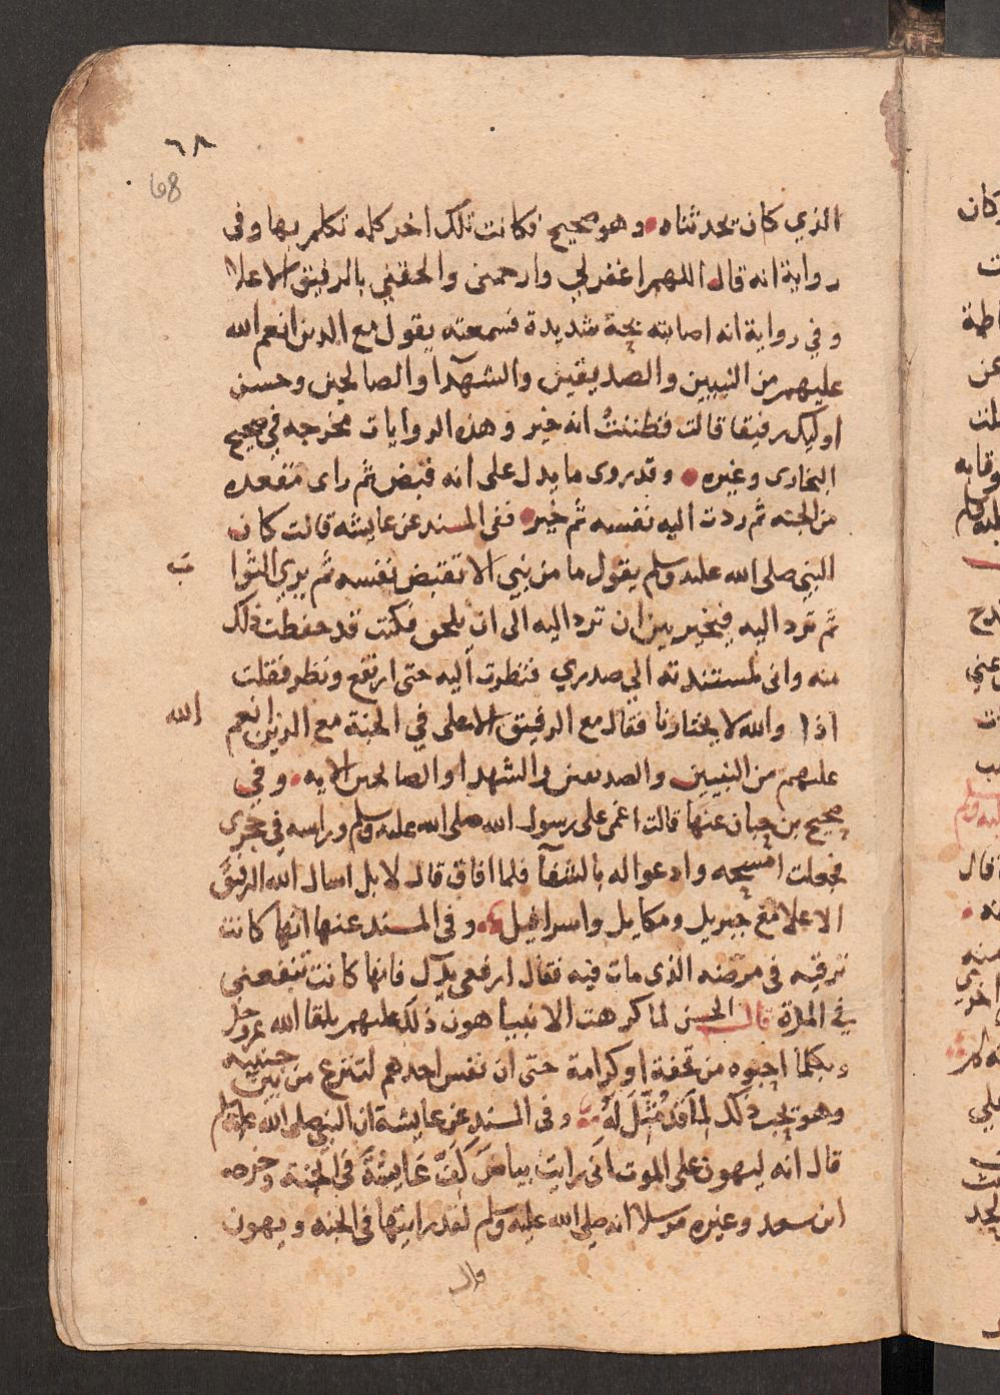 ٦٨
68
الذي كان يحدثناه وهو صحيح فكانت تلك اخر كلمه تكلم بها وفى
رواية انه قال اللهم اغفر لي وارحمنى والحقني بالرفيق الاعلا
وفي رواية انه اصابته بحة شديدة فسمعته يقول مع الذين انعم الله
عليهم من النبيين والصديقين والشهدآ والصالحين وحسن
اوليك رفيقا قالت فظننتُ انه خير وهذه الروايات مخرجه في صحيح
البخارى وغيره وقد روى ما يدل على انه قبض ثم راى مقعده
من الجنه ثم ردت اليه نفسه ثم خير ففى المسند عن عايشه قالت كان
النبي صلى الله عليه وسلم يقول ما من نبي الا تقبض نفسه ثم يري الثوا
ب
ثم ترد اليه فيخير بين ان ترد اليه الى ان يلحق فكنت قد حفظت ذلك
منه وانى لمستندته الي صدري فنظرت اليه حتى ارتفع ونظر فقلت
اذا والله لا يختارنا فقال مع الرفيق الاعلى في الجنة مع الذين انعم
الله
عليهم من النبيين والصديقين والشهدا والصالحين الايه وفي
صحيح بن حبان عنها قالت اغمى على رسول الله صلى الله عليه وسلم وراسه في حجرى
فجعلت امسحه وادعوا له بالشفآ فلما افاق قال لا بل اسال الله الرفيق
الاعلا مع جبريل ومكايل واسرافيل وفى المسند عنها انها كانت
ترقيه فى مرضه الذى مات فيه فقال ارفعي يدك فانها كانت تنفعنى
في المدة قال الحسن لما كرهت الانبيا هون ذلك عليهم بلقا الله عز وجل
وبكلما احبوه من تحفة او كرامة حتى ان نفس احدهم لتنزع من بين جنبيه
وهو يحب ذلك لما قد مُثِّلَ لَهُ وفى المسند عن عايشة ان النبي صلى الله عليه وسلم
قال انه ليهون على الموت انى رايت بياضَ كَفِّ عَايشَةَ فى الجنة وخرجه
ابن سعد وغيره مرسلا انه صلى الله عليه وسلم لقد رايتها فى الجنه ويهون